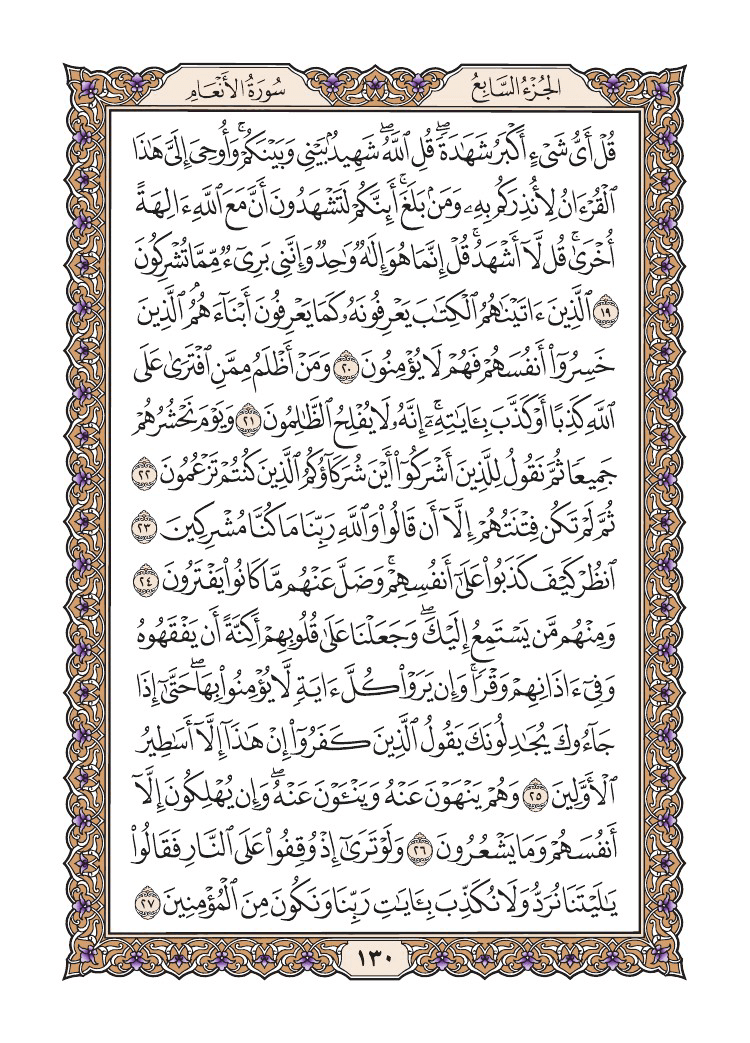 الجُزْءُ السَّابِعُ
سُورَةُ الأَنْعَامِ
قُلْ أَىُّ شَىْءٍ أَكْبَرُ شَهَٰدَةًۖ قُلِ ٱللَّهُۖ شَهِيدُۢ بَيْنِى وَبَيْنَكُمْۚ وَأُوحِىَ إِلَىَّ هَٰذَا
ٱلْقُرْءَانُ لِأُنذِرَكُم بِهِۦ وَمَنۢ بَلَغَۚ أَئِنَّكُمْ لَتَشْهَدُونَ أَنَّ مَعَ ٱللَّهِ ءَالِهَةً
أُخْرَىٰۚ قُل لَّآ أَشْهَدُۚ قُلْ إِنَّمَا هُوَ إِلَٰهٌ وَٰحِدٌ وَإِنَّنِى بَرِىٓءٌ مِّمَّا تُشْرِكُونَ
١٩ ٱلَّذِينَ ءَاتَيْنَٰهُمُ ٱلْكِتَٰبَ يَعْرِفُونَهُۥ كَمَا يَعْرِفُونَ أَبْنَآءَهُمُۘ ٱلَّذِينَ
خَسِرُوٓا۟ أَنفُسَهُمْ فَهُمْ لَا يُؤْمِنُونَ ٢٠ وَمَنْ أَظْلَمُ مِمَّنِ ٱفْتَرَىٰ عَلَى
ٱللَّهِ كَذِبًا أَوْ كَذَّبَ بِـَٔايَٰتِهِۦٓۗ إِنَّهُۥ لَا يُفْلِحُ ٱلظَّٰلِمُونَ ٢١ وَيَوْمَ نَحْشُرُهُمْ
جَمِيعًا ثُمَّ نَقُولُ لِلَّذِينَ أَشْرَكُوٓا۟ أَيْنَ شُرَكَآؤُكُمُ ٱلَّذِينَ كُنتُمْ تَزْعُمُونَ ٢٢
ثُمَّ لَمْ تَكُن فِتْنَتُهُمْ إِلَّآ أَن قَالُوا۟ وَٱللَّهِ رَبِّنَا مَا كُنَّا مُشْرِكِينَ ٢٣
ٱنظُرْ كَيْفَ كَذَبُوا۟ عَلَىٰٓ أَنفُسِهِمْۚ وَضَلَّ عَنْهُم مَّا كَانُوا۟ يَفْتَرُونَ ٢٤
وَمِنْهُم مَّن يَسْتَمِعُ إِلَيْكَۖ وَجَعَلْنَا عَلَىٰ قُلُوبِهِمْ أَكِنَّةً أَن يَفْقَهُوهُ
وَفِىٓ ءَاذَانِهِمْ وَقْرًاۚ وَإِن يَرَوْا۟ كُلَّ ءَايَةٍ لَّا يُؤْمِنُوا۟ بِهَاۖ حَتَّىٰٓ إِذَا
جَآءُوكَ يُجَٰدِلُونَكَ يَقُولُ ٱلَّذِينَ كَفَرُوٓا۟ إِنْ هَٰذَآ إِلَّآ أَسَٰطِيرُ
ٱلْأَوَّلِينَ ٢٥ وَهُمْ يَنْهَوْنَ عَنْهُ وَيَنْـَٔوْنَ عَنْهُۖ وَإِن يُهْلِكُونَ إِلَّآ
أَنفُسَهُمْ وَمَا يَشْعُرُونَ ٢٦ وَلَوْ تَرَىٰٓ إِذْ وُقِفُوا۟ عَلَى ٱلنَّارِ فَقَالُوا۟
يَٰلَيْتَنَا نُرَدُّ وَلَا نُكَذِّبَ بِـَٔايَٰتِ رَبِّنَا وَنَكُونَ مِنَ ٱلْمُؤْمِنِينَ ٢٧
١٣٠